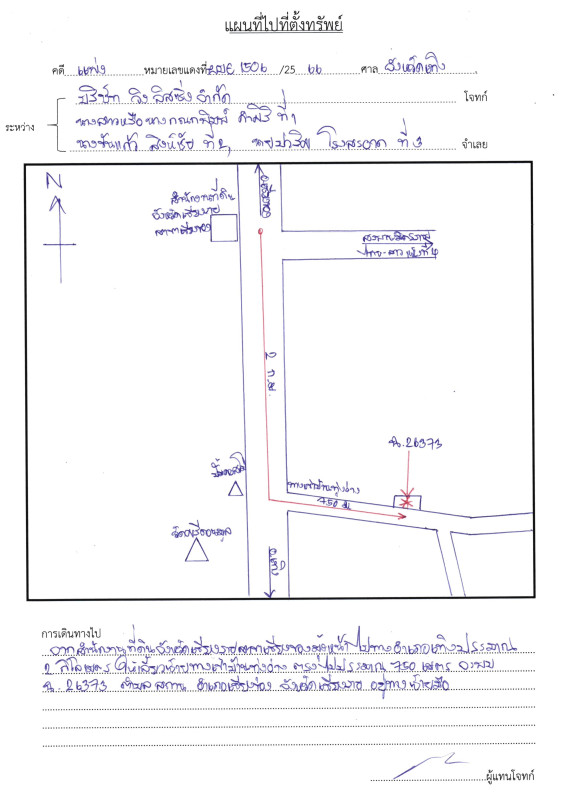 แผนที่ไปที่ตั้งทรัพย์
คดี แพ่ง หมายเลขแดงที่ ผบE 1506 /25 66 ศาล จังหวัดเทิง
บริษัท ลิสซิ่ง จำกัด โจทก์
ระหว่าง นางสาวหรือนาง ที่ 1
นางจันแก้ว สิงห์ชัย ที่ 2, ที่ 3 จำเลย
N
สำนักงานที่ดิน
จังหวัดเชียงราย
สาขาเชียงของ
อ.เชียงของ
สะพานมิตรภาพ
ไทย-ลาว แห่งที่ 4
2 ก.ม.
น.ส. 26373
ทางเข้าบ้านทุ่งอ่าง
750 ม.
อ.เทิง
การเดินทางไป
จากสำนักงานที่ดินจังหวัดเชียงรายสาขาเชียงของมุ่งหน้าไปทางอำเภอเทิงประมาณ
2 กิโลเมตร ให้เลี้ยวซ้ายทางเข้าบ้านทุ่งอ่าง ตรงไปประมาณ 750 เมตร จะพบ
ฉ. 26373 ตำบล สถาน อำเภอเชียงของ จังหวัดเชียงราย อยู่ทางซ้ายมือ
ผู้แทนโจทก์